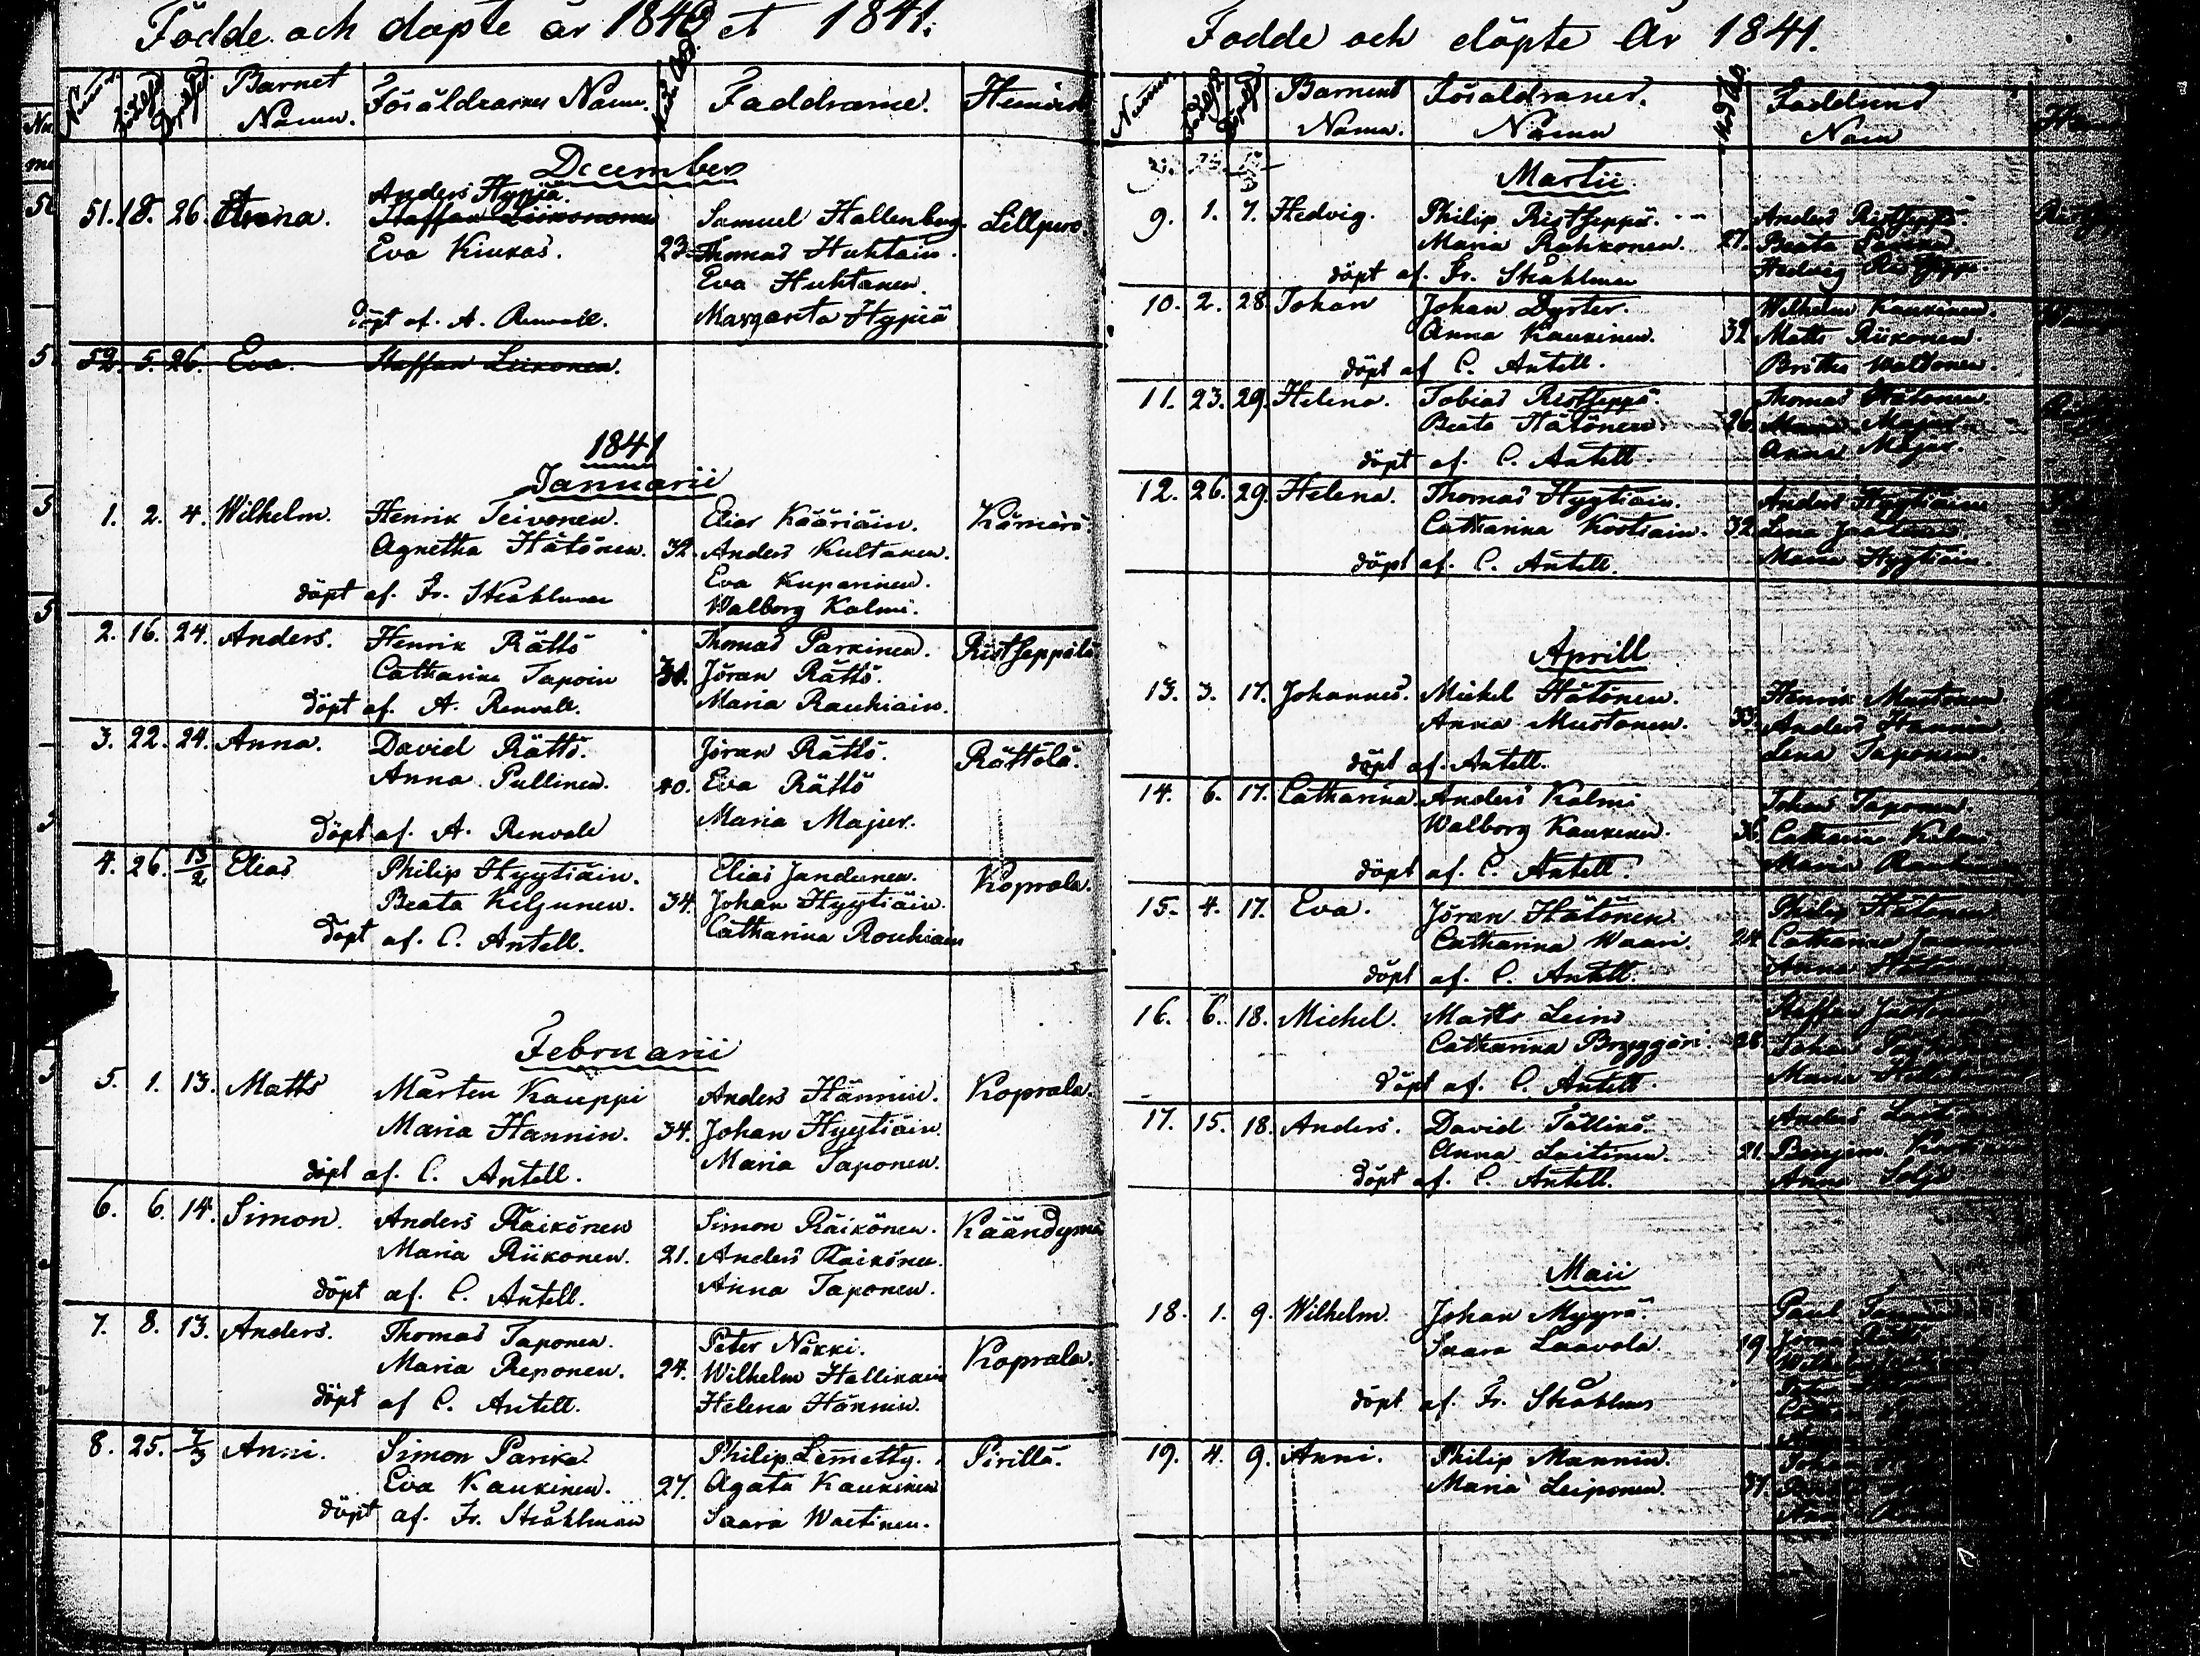 Födde och döpte år 1840 et 1841.
Num: Födelsed. Dopsd. Barnet Namn. Föräldrarnes Namn. Faddrarne. Hemvist
December
51. 18. 26. Anna. Anders Hypjä. Samuel Hallenberg. Lillpero
Staffan Liikonen
Eva Kiukas. 23. Thomas Huhtain.
Eva Huhtanen.
döpt af. A. Renvall. Margareta Hypiä
52. 5. 26. Eva. Staffan Liikonen.
1841
Januarii
1. 2. 4. Wilhelm. Henrik Teivonen. Elias Kääriäin. Kämärä.
Agnetha Hätönen. 32. Anders Kultanen.
Eva Kuparinen.
döpt af. Fr. Ståhlman Walborg Kalmi.
2. 16. 24. Anders. Henrik Rättö Thomas Parkinen. Ristseppälä
Catharina Tapoin Jöran Rättö.
döpt af. A. Renvall. Maria Rauhiain.
3. 22. 24. Anna. David Rättö. Jöran Rättö. Rättölä.
Anna Pullinen. 40. Eva Rättö
döpt af. A. Renvall Maria Majur.
4. 26. 13/2 Elias Philip Hyytiäin. Elias Jandunen. Koprala.
Beata Kiljunen. 34. Johan Hyytiäin.
döpt af. C. Antell. Catharina Rouhiain
Februarii
5. 1. 13. Matts Mårten Kauppi Anders Hännin. Koprala.
Maria Hannin. 34. Johan Hyytiäin.
döpt af. C. Antell. Maria Taponen.
6. 6. 14. Simon. Anders Räikönen Simon Räikönen. Käändymä
Maria Riikonen. 21. Anders Räikönen.
döpt af. C. Antell. Anna Taponen.
7. 8. 13. Anders. Thomas Taponen. Peter Näkki. Koprala.
Maria Reponen. 24. Wilhelm Hallikain
döpt af C. Antell. Helena Hännin.
8. 25. 7/3 Anni. Simon Parika Philip Lemetty. Pirillä.
Eva Kaukinen. 27. Agata Kaukinen
döpt af. Fr. Ståhlman Saara Waetinen.
Födde och döpte År 1841.
Barnens Namn. Föräldrarnes Namn Faddrarnes Namn
Martii
9. 1. 7. Hedvig. Philip Ristseppä. Anders Ristseppä.
Maria Rahkonen. 27. Beata
döpt af. Fr. Ståhlman Hedvig Ristseppä.
10. 2. 28. Johan Johan Dyster. Wilhelm Kaukinen.
Anna Kaukinen. 32 Matts Riikonen.
döpt af C. Antell. Britha Waltonen.
11. 23. 29. Helena. Tobias Ristseppä. Thomas Hätönen.
Beata Hätönen. 26. Maria Majur
döpt af. C. Antell. Anna Majur.
12. 26. 29. Helena. Thomas Hyytiäin. Anders Hyytiäinen
Catharina Kostiain. 32 Lena
döpt af. C. Antell. Maria Hyytiäin.
Aprill
13. 3. 17. Johannes. Michel Hätönen. Henrik Mustonen
Anna Mustonen. 33. Anders Hannin
döpt af. Antell. Lena Taponen.
14. 6. 17. Catharina Anders Kalmi Johan Taponen.
Walborg Kaukinen. 36. Catharina Kalmi
döpt af. C. Antell. Maria
15. 4. 17. Eva. Jöran Hätönen Philip Hätönen
Catharina Waari. 24 Catharina
döpt af. C. Antell. Anna
16. 6. 18. Michel. Matts Leino Staffan
Catharina Bryggäri 28. Johan
döpt af. C. Antell. Maria
17. 15. 18. Anders. David Tällikö. Anders
Anna Laitinen. 21. Benjam
döpt af. C. Antell. Anna
Maii
18. 1. 9. Wilhelm. Johan Myyrä. Paul
Saara Laavola. 19 Jöran
döpt af. Fr. Ståhlman
19. 4. 9. Anni. Philip Mannin. Johan
Maria Leiponen. 37.